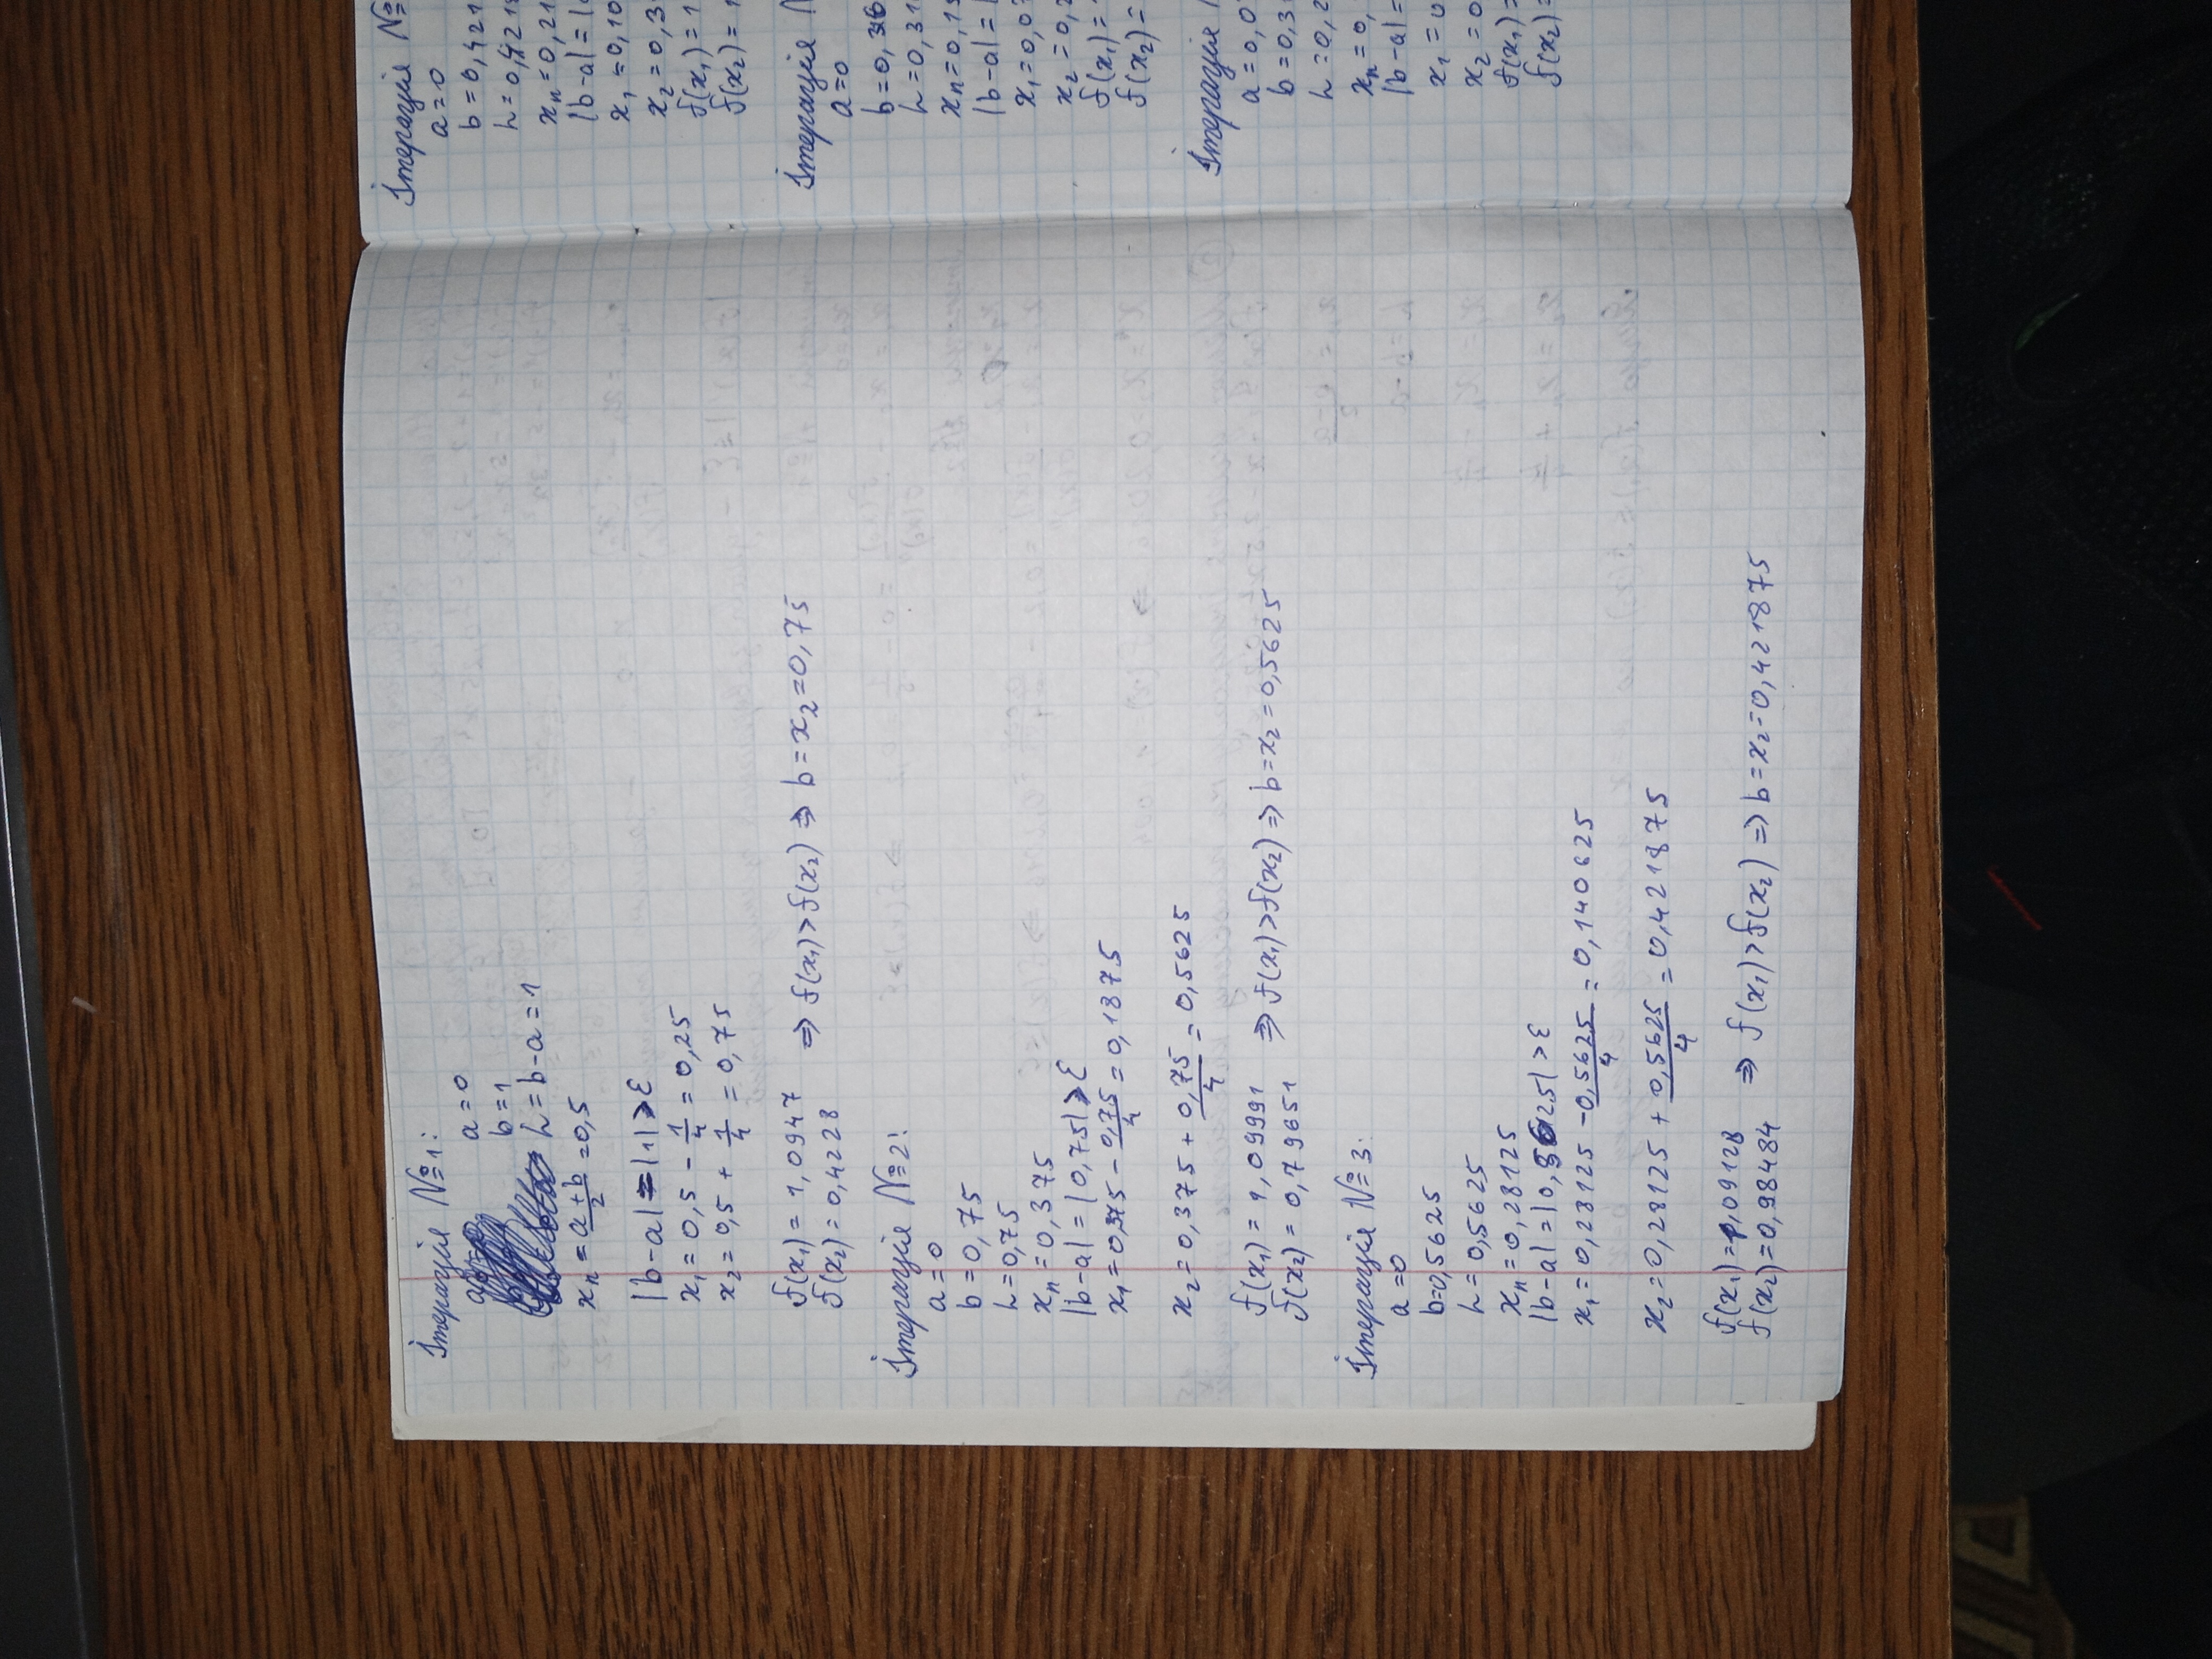 Ітерація №1:
a=0
b=1
L=b-a=1
xₙ = a+b/2 = 0,5
|b-a| = |1| > ε
x₁ = 0,5 - 1/4 = 0,25
x₂ = 0,5 + 1/4 = 0,75
f(x₁) = 1,0947
f(x₂) = 0,4228
⇒ f(x₁)>f(x₂) ⇒ b=x₂=0,75
Ітерація №2:
a=0
b=0,75
L=0,75
xₙ=0,375
|b-a| = |0,75| > ε
x₁=0,375 - 0,75/4 = 0,1875
x₂=0,375 + 0,75/4 = 0,5625
f(x₁) = 1,09991
f(x₂) = 0,79651
⇒ f(x₁)>f(x₂) ⇒ b=x₂=0,5625
Ітерація №3:
a=0
b=0,5625
L=0,5625
xₙ=0,28125
|b-a|=|0,5625|>ε
x₁=0,28125 - 0,5625/4 = 0,140625
x₂=0,28125 + 0,5625/4 = 0,421875
f(x₁)=1,09128
f(x₂)=0,98484
⇒ f(x₁)>f(x₂) ⇒ b=x₂=0,421875
Ітерація №
a=0
b=0,421
L=0,421
xₙ=0,21
|b-a|=
x₁=0,10
x₂=0,3
f(x₁)=1
f(x₂)=1
Ітерація
a=0
b=0,316
L=0,31
xₙ=0,15
|b-a|=
x₁=0,07
x₂=0,2
f(x₁)=
f(x₂)=
Ітерація
a=0,0
b=0,3
L=0,2
xₙ=0,
|b-a|=
x₁=0
x₂=0
f(x₁)=
f(x₂)=